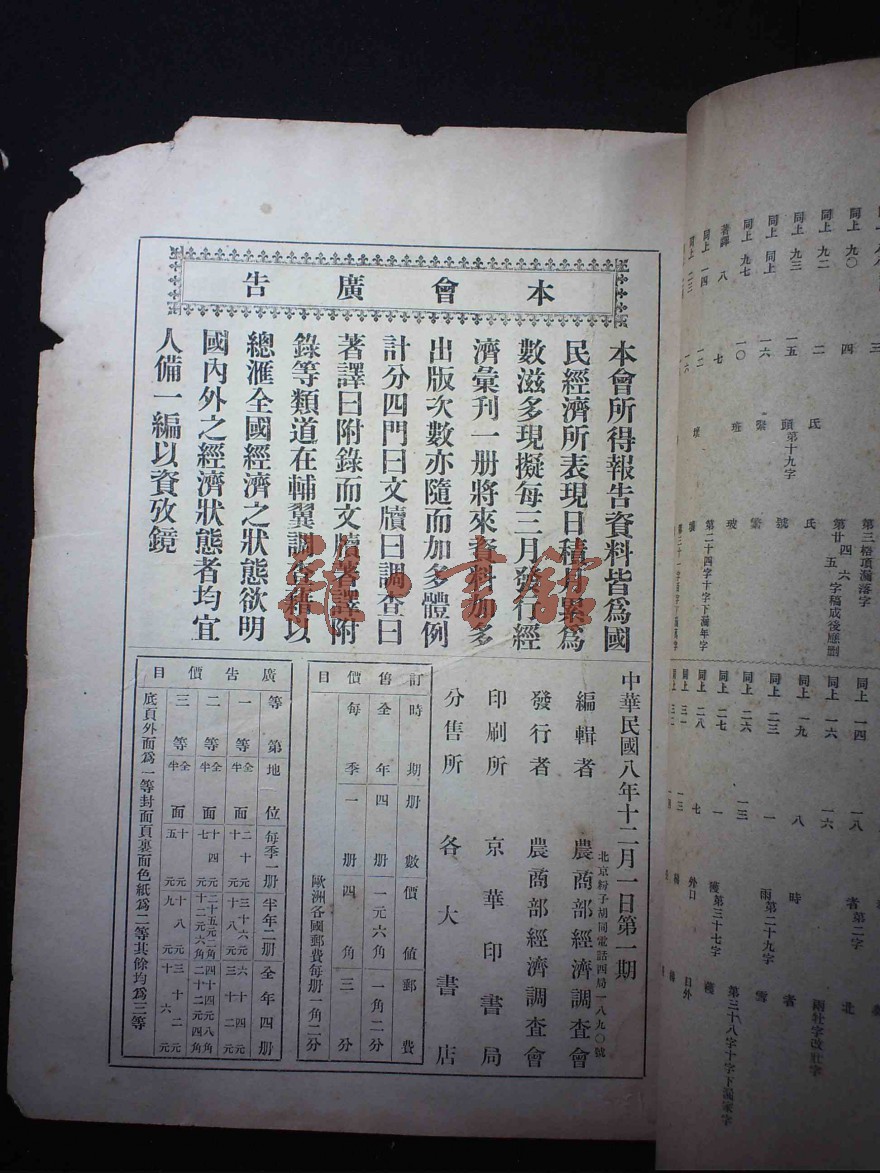 本會廣告
本會所得報告資料皆爲國
民經濟所表現日積月累爲
數滋多現擬每三月發行經
濟彙刊一册將來資料加多
出版次數亦隨而加多體例
計分四門曰文牘曰調查曰
著譯曰附錄而文牘著譯附
錄等類道在輔翼調查藉以
總滙全國經濟之狀態欲明
國內外之經濟狀態者均宜
人備一編以資攷鏡
中華民國八年十二月一日第一期
北京粉子胡同電話四局一八九〇號
編輯者 農商部經濟調查會
發行者 農商部經濟調查會
印刷所 京華印書局
分售所 各大書店
訂售價目
時期 册數 價值 郵費
全年 四册 一元六角 一角二分
每季 一册 四角 三分
歐洲各國郵費每册一角二分
廣告價目
等第 地位 每季一册 半年二册 全年四册
一等 全面 二十元 三十六元 六十四元
半面 十元 十八元 三十二元
二等 全面 十四元 二十五元二角 四十四元八角
半面 七元 十二元六角 二十二元四角
三等 全面 十元 十八元 三十二元
半面 五元 九元 十六元
底頁外面爲一等封面頁裏面色紙爲二等其餘均爲三等
同上 九〇
同上 九二
同上 九三
同上 同上
同上 九七
著譯 八
同上 一四
四
二
一五
一六
一〇
七
一二
氏
頭第十九字
班
第三格項漏落字
第廿四五六字稿成後應刪
氏
號
玻
第二十四字十字下漏年字
同上 一四
同上 一六
同上 一九
同上 二三
同上 二六
同上 二七
同上 二八
同上 三一
一八
一六
八
一
一三
一
七
一三
者第二字
時
雨第二十九字
隆第三十七字
外口
北
兩社字改壯字
者
雪
第三十八字十字下漏家字
口外